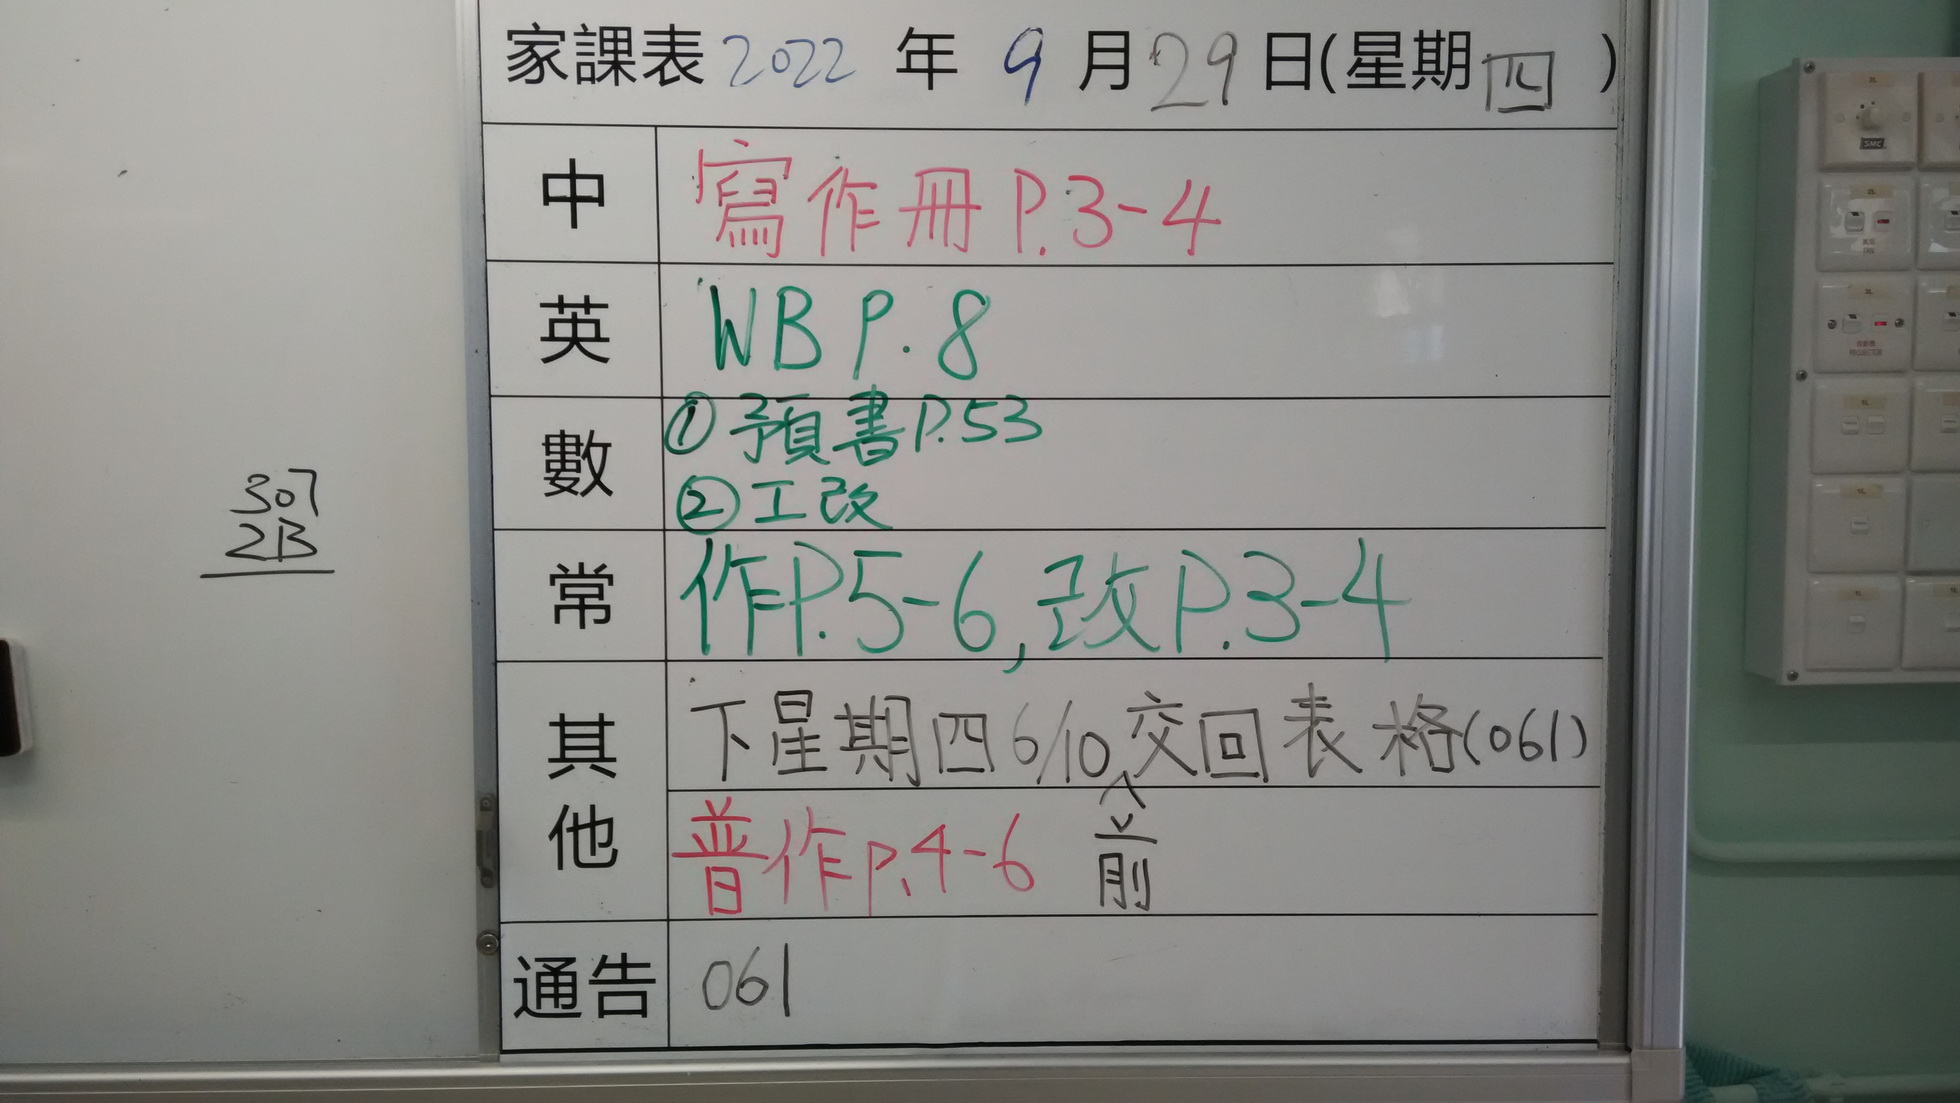 家課表 2022 年 9 月 29 日(星期四)
中 寫作冊 P.3-4
英 WB P.8
數 ①預書P.53
②工改
常 作P.5-6, 改P.3-4
其他 下星期四6/10前交回表格(061)
普作p.4-6
通告 061
307
2B
SMC